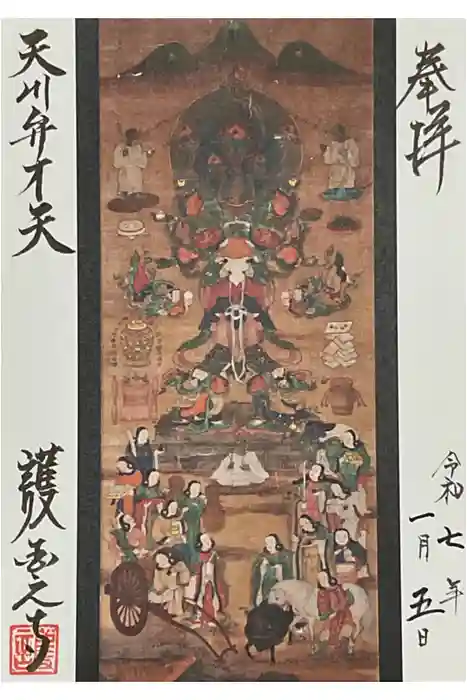 奉拝
令和七年
一月五日
天川弁才天
護国之寺